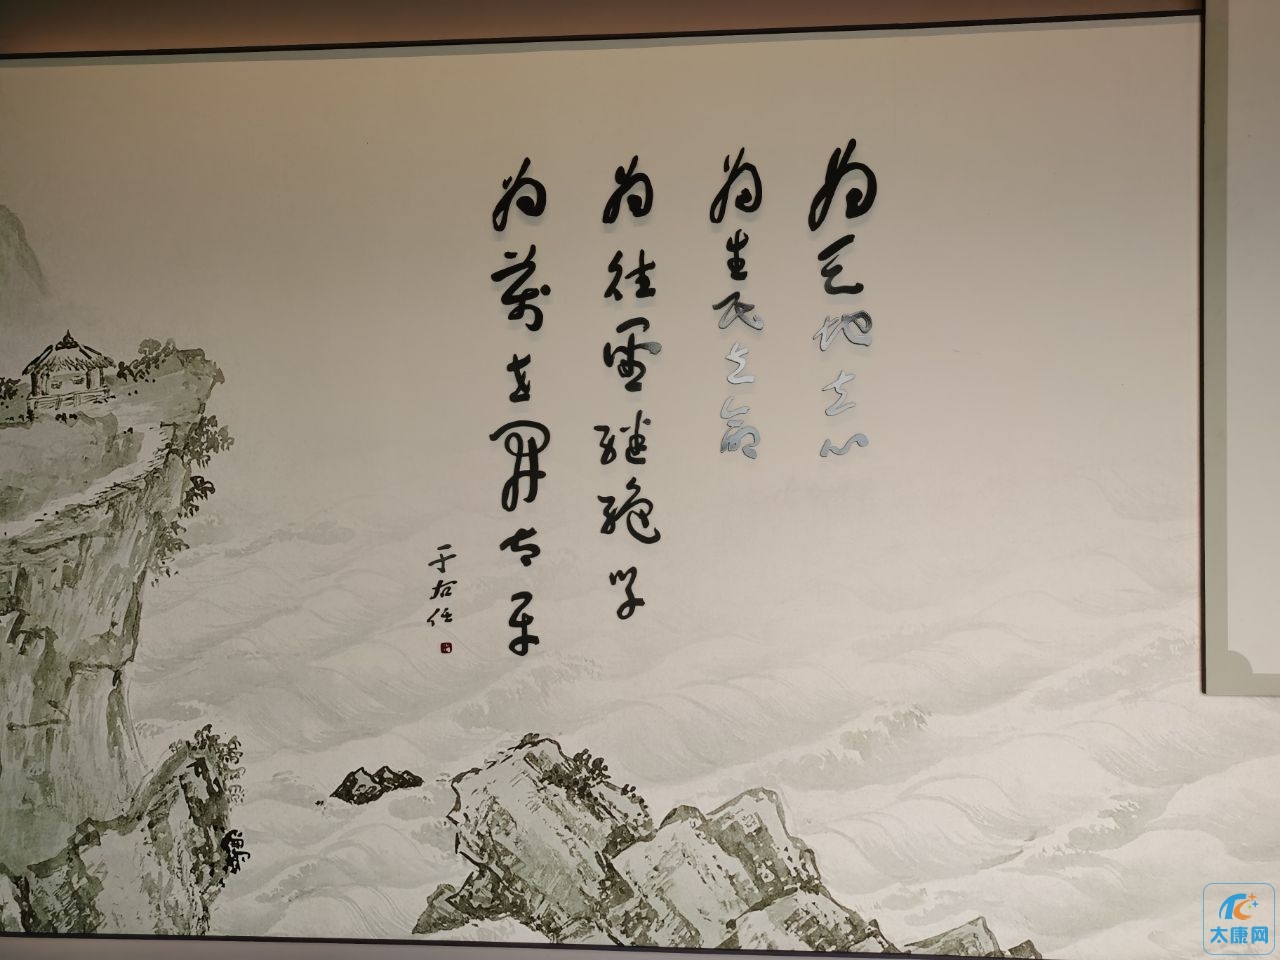 为天地立心
为生民立命
为往圣继绝学
为万世开太平
于右任
太康网